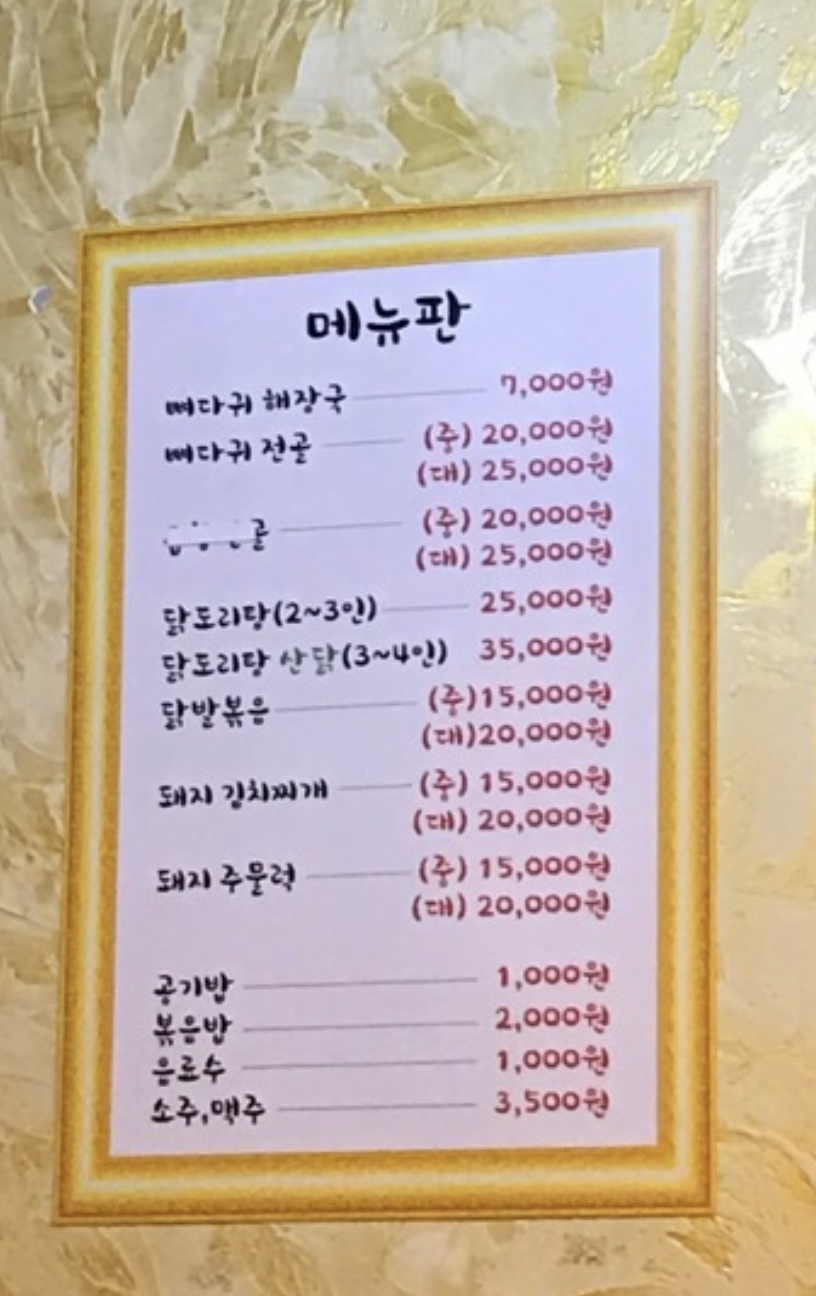 메뉴판
뼈다귀 해장국 7,000원
뼈다귀 전골 (중) 20,000원
(대) 25,000원
(중) 20,000원
(대) 25,000원
닭도리탕(2~3인) 25,000원
닭도리탕 산닭(3~4인) 35,000원
닭발볶음 (중)15,000원
(대)20,000원
돼지 김치찌개 (중) 15,000원
(대) 20,000원
돼지 주물럭 (중) 15,000원
(대) 20,000원
공기밥 1,000원
볶음밥 2,000원
음료수 1,000원
소주,맥주 3,500원